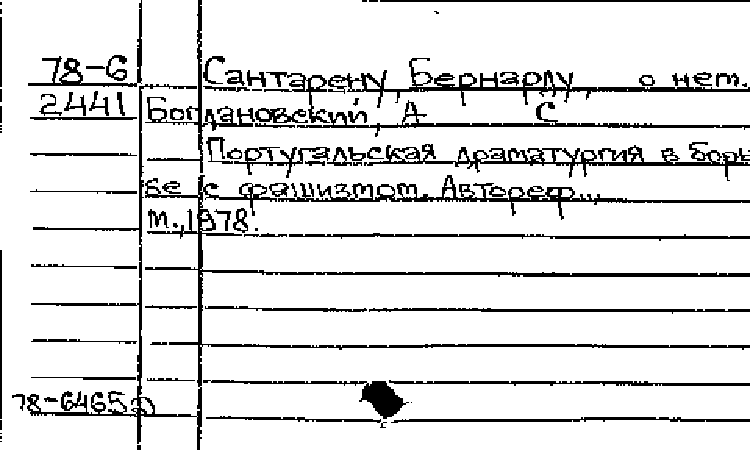 78-6 Сантарену, Бернарду, о нем.
2441 Богдановский, А С
Португальская драматургия в борь
бе с фашизмом. Автореф...,
М., 1978.
78-6465